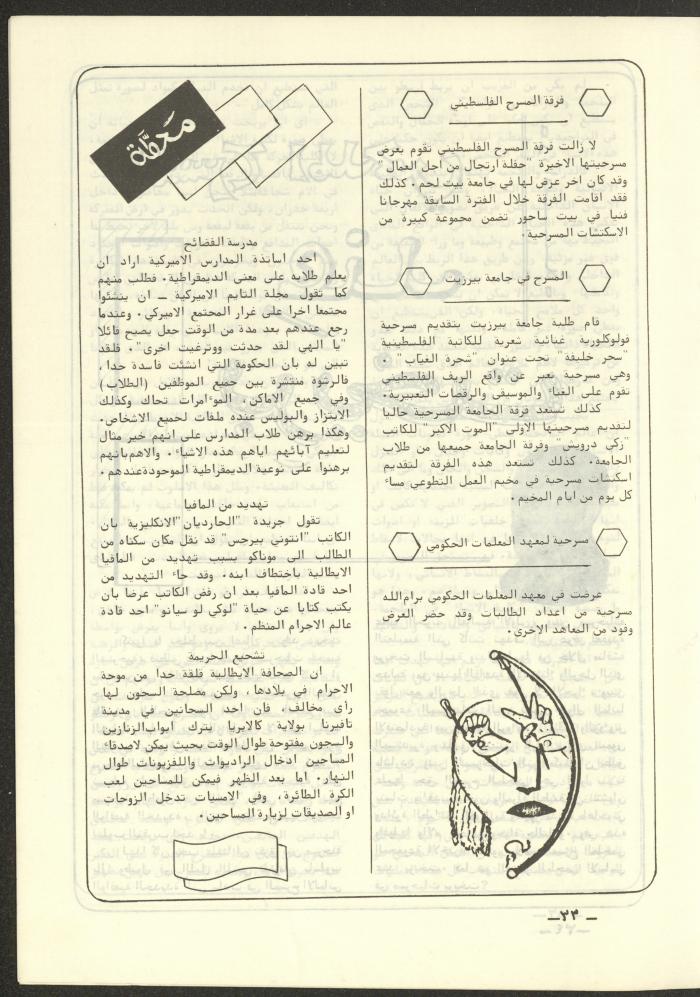 فرقة المسرح الفلسطيني
لا زالت فرقة المسرح الفلسطيني تقوم بعرض
مسرحيتها الاخيرة "حفلة ارتجال من اجل العمال"
وقد كان اخر عرض لها في جامعة بيت لحم. كذلك
فقد اقامت الفرقة خلال الفترة السابقة مهرجانا
فنيا في بيت ساحور تضمن مجموعة كبيرة من
الاسكتشات المسرحية.
المسرح في جامعة بيرزيت
قام طلبة جامعة بيرزيت بتقديم مسرحية
فولوكلورية غنائية شعرية للكاتبة الفلسطينية
"سحر خليفة" تحت عنوان "شجرة الغياب".
وهي مسرحية تعبر عن واقع الريف الفلسطيني
تقوم على الغناء والموسيقى والرقصات التعبيرية.
كذلك تستعد فرقة الجامعة المسرحية حاليا
لتقديم مسرحيتها الاولى "الموت الاكبر" للكاتب
"زكي درويش" وفرقة الجامعة جميعها من طلاب
الجامعة. كذلك تستعد هذه الفرقة لتقديم
اسكتشات مسرحية في مخيم العمل التطوعي مساء
كل يوم من ايام المخيم.
مسرحية لمعهد المعلمات الحكومي
عرضت في معهد المعلمات الحكومي برام الله
مسرحية من اعداد الطالبات وقد حضر العرض
وفود من المعاهد الاخرى.
محطة
مدرسة الفضائح
احد اساتذة المدارس الاميركية اراد ان
يعلم طلابه على معنى الديمقراطية. فطلب منهم
كما تقول مجلة التايم الاميركية ــ ان ينشئوا
مجتمعا اخرا على غرار المجتمع الاميركي. وعندما
رجع عندهم بعد مدة من الوقت جعل يصيح قائلا
"يا الهي لقد حدثت ووترغيت اخرى". فلقد
تبين له بان الحكومة التي انشئت فاسدة جدا،
فالرشوة منتشرة بين جميع الموظفين (الطلاب)
وفي جميع الاماكن، الموءامرات تحاك وكذلك
الابتزاز والبوليس عنده ملفات لجميع الاشخاص.
وهكذا برهن طلاب المدارس على انهم خير مثال
لتعليم آبائهم اياهم هذه الاشياء. والاهم بانهم
برهنوا على نوعية الديمقراطية الموجودة عندهم.
تهديد من المافيا
تقول جريدة "الجارديان" الانكليزية بان
الكاتب "انتوني بيرجس" قد نقل مكان سكناه من
الطالب الى موناكو بسبب تهديد من المافيا
الايطالية باختطاف ابنه. وقد جاء التهديد من
احد قادة المافيا بعد ان رفض الكاتب عرضا بان
يكتب كتابا عن حياة "لوكي لو سيانو" احد قادة
عالم الاجرام المنظم.
تشجيع الجريمة
ان الصحافة الايطالية قلقة جدا من موجة
الاجرام في بلادها، ولكن مصلحة السجون لها
رأي مخالف، فان احد السجانين في مدينة
تافيرنا بولاية كالابريا يترك ابواب الزنازين
والسجون مفتوحة طوال الوقت بحيث يمكن لاصدقاء
المساجين ادخال الراديوات والتلفزيونات طوال
النهار. اما بعد الظهر فيمكن للمساجين لعب
الكرة الطائرة، وفي الامسيات تدخل الزوجات
او الصديقات لزيارة المساجين.
ــ ٢٣ــ